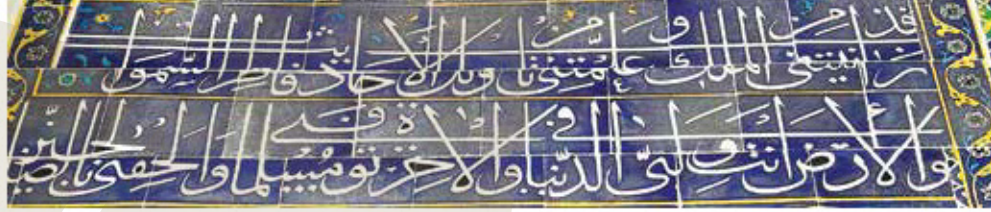 رب قد اتيتني من الملك وعلمتني من تأويل الأحاديث فاطر السموات
والأرض أنت وليي في الدنيا والآخرة توفني مسلما وألحقني بالصالحين